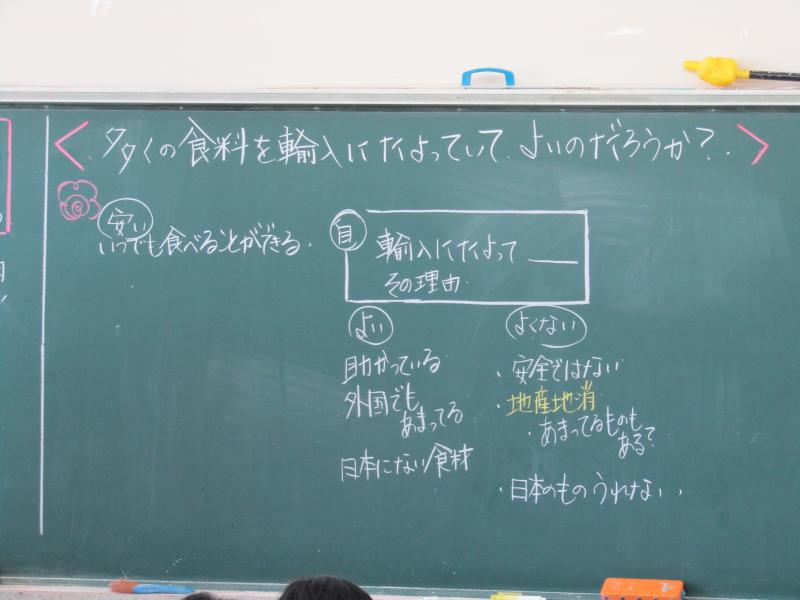 多くの食料を輸入にたよっていて、よいのだろうか?
安い
いつでも食べることができる。
自
輸入にたよって____
その理由
よい
助かっている
外国でも
あまってる
日本にない食材
よくない
・安全ではない
・地産地消
・あまってるものも
ある?
・日本のものうれない。